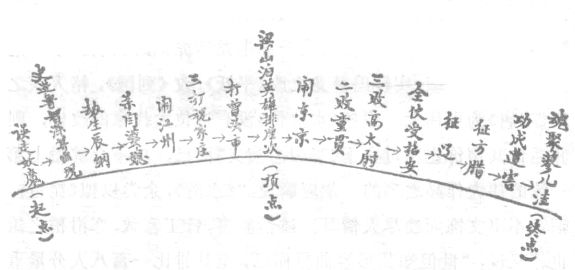 误走妖魔(起点)
劫生辰纲
闹江州
三打祝家庄
打曾头市
梁山泊英雄排座次(顶点)
闹东京
二败童贯
三败高太尉
全伙受招安
征辽
征方腊
功成遭害
魂聚蓼儿洼(终点)